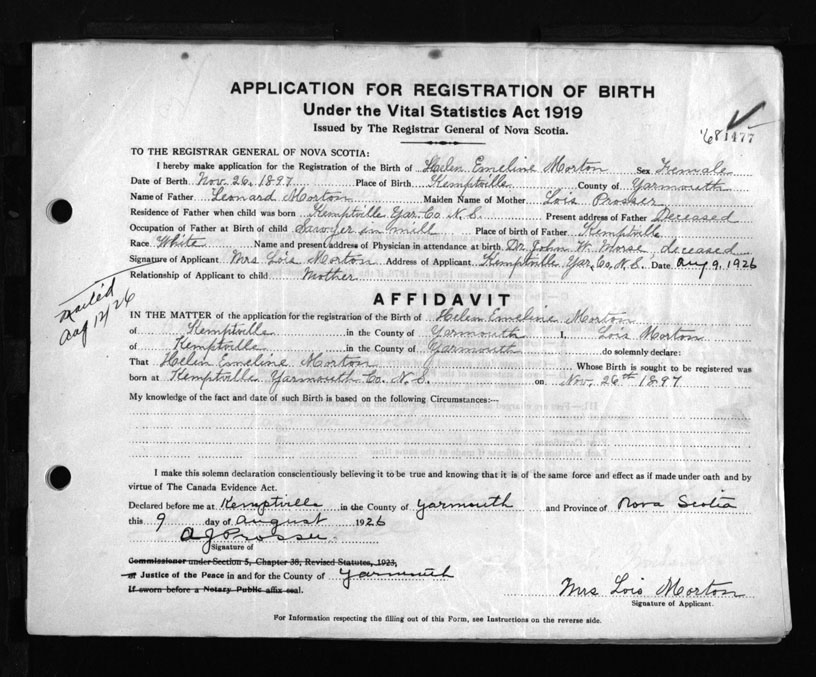 APPLICATION FOR REGISTRATION OF BIRTH
Under the Vital Statistics Act 1919
Issued by The Registrar General of Nova Scotia.
'68 1477
TO THE REGISTRAR GENERAL OF NOVA SCOTIA:
I hereby make application for the Registration of the Birth of Helen Emeline Morton Sex Female
Date of Birth Nov 26, 1897 Place of Birth Kemptville County of Yarmouth
Name of Father Leonard Morton Maiden Name of Mother Lois Prosser
Residence of Father when child was born Kemptville Yar. Co. N. S. Present address of Father Deceased
Occupation of Father at Birth of child Sawyer in mill Place of birth of Father Kemptville
Race White Name and present address of Physician in attendance at birth Dr. John W. Morse, deceased
Signature of Applicant Mrs Lois Morton Address of Applicant Kemptville Yar. Co, N. S. Date Aug 9, 1926
Relationship of Applicant to child Mother
mailed
Aug 12/26
AFFIDAVIT
IN THE MATTER of the application for the registration of the Birth of Helen Emeline Morton
of Kemptville in the County of Yarmouth I, Lois Morton
of Kemptville in the County of Yarmouth do solemnly declare:
That Helen Emeline Morton Whose Birth is sought to be registered was
born at Kemptville Yarmouth Co. N. S. on Nov. 26th 1897
My knowledge of the fact and date of such Birth is based on the following Circumstances:—
I make this solemn declaration conscientiously believing it to be true and knowing that it is of the same force and effect as if made under oath and by
virtue of The Canada Evidence Act.
Declared before me at Kemptville in the County of Yarmouth and Province of Nova Scotia
this 9 day of August 1926
A J Prosser
Signature of
Commissioner under Section 5, Chapter 38, Revised Statutes, 1923,
or Justice of the Peace in and for the County of Yarmouth
If sworn before a Notary Public affix seal.
Mrs Lois Morton
Signature of Applicant.
For Information respecting the filling out of this Form, see Instructions on the reverse side.